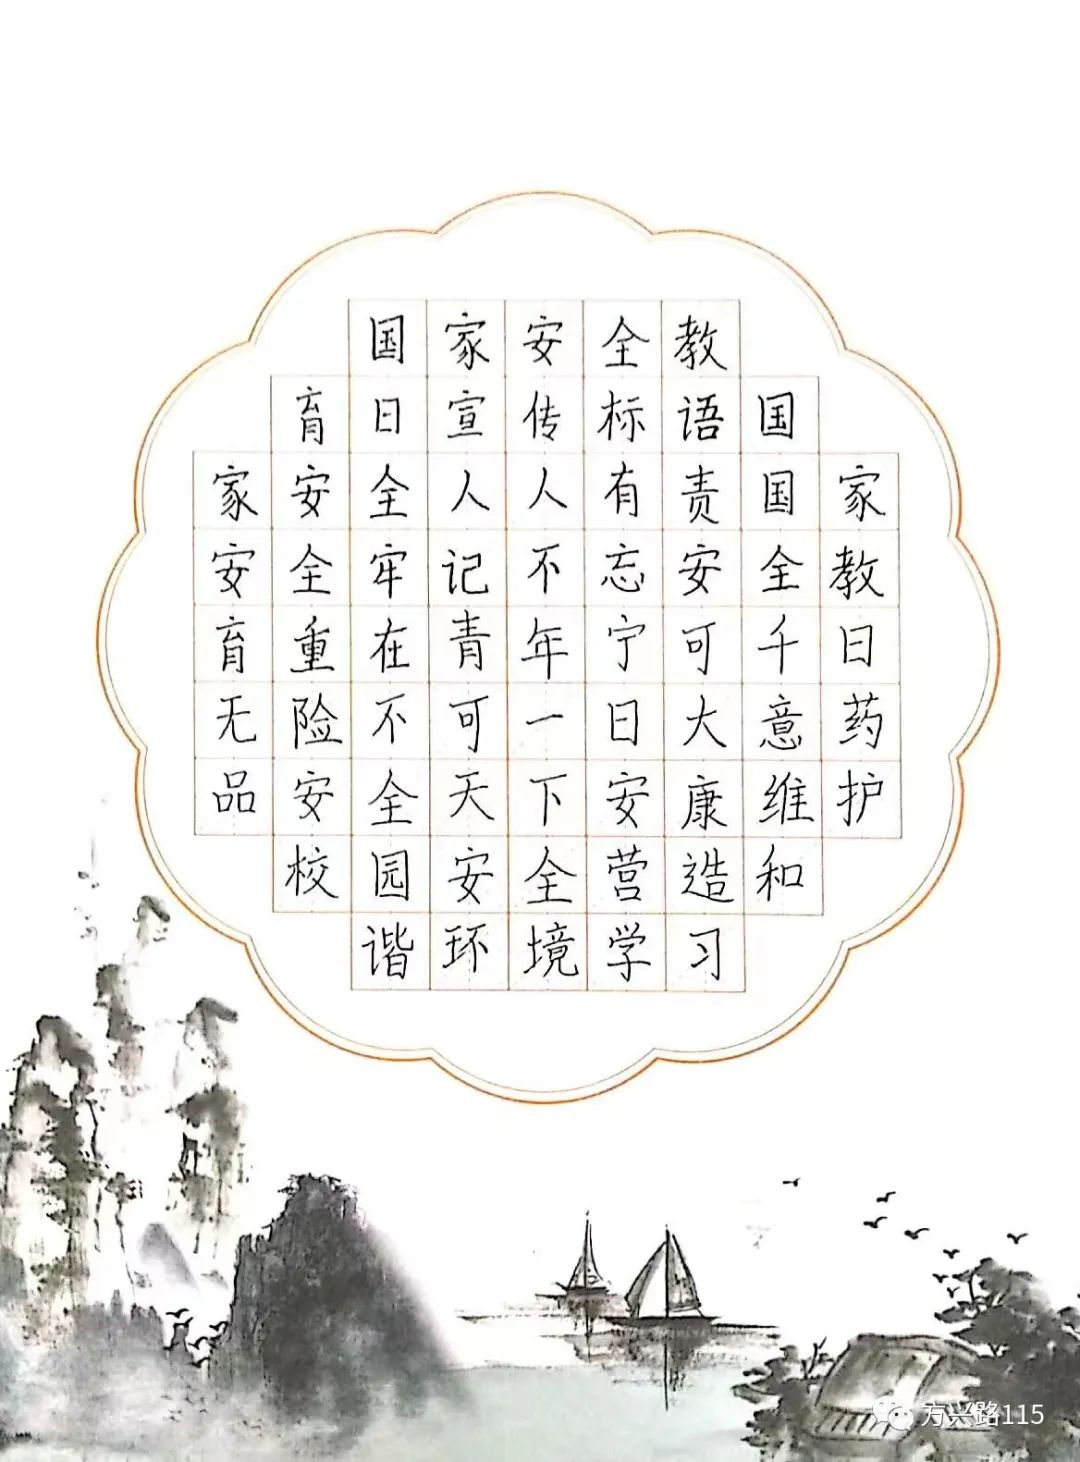 国家安全教
育日宣传标语国
家安全人人有责国家
安全牢记不忘安全教
育重在青年宁可千日
无险不可一日大意药
品安全天下安康维护
校园安全营造和
谐环境学习
方兴路115